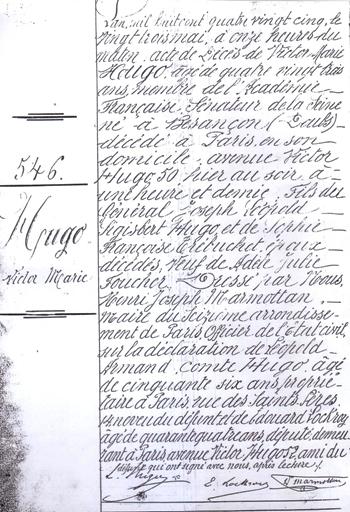 546.
Hugo
Victor Marie
L'an mil huit cent quatre vingt cinq, le
vingt trois mai, à onze heures du
matin. acte de décès de Victor Marie
Hugo, âgé de quatre vingt trois
ans, membre de l'Académie
Française, Sénateur de la Seine
né à Besançon (Doubs)
décédé à Paris, en son
domicile, avenue Victor
Hugo 50, hier au soir à
une heure et demie, fils du
Général Joseph Léopold
Sigisbert Hugo, et de Sophie
Françoise Trébuchet, époux
décédés, Veuf de Adèle Julie
Foucher. Dressé par Nous,
Henri Joseph Marmottan,
maire du Seizième arrondisse-
ment de Paris, Officier de l'état civil,
sur la déclaration de Léopold
Armand, comte Hugo, âgé
de cinquante six ans, proprié-
taire à Paris, rue des Saints Pères,
neveu du défunt, et de Edouard Lockroy
âgé de quarante quatre ans, député, demeu-
rant à Paris avenue Victor Hugo 52, ami du
défunt qui ont signé avec nous, après lecture./.
L. Hugo E. Lockroy H Marmottan